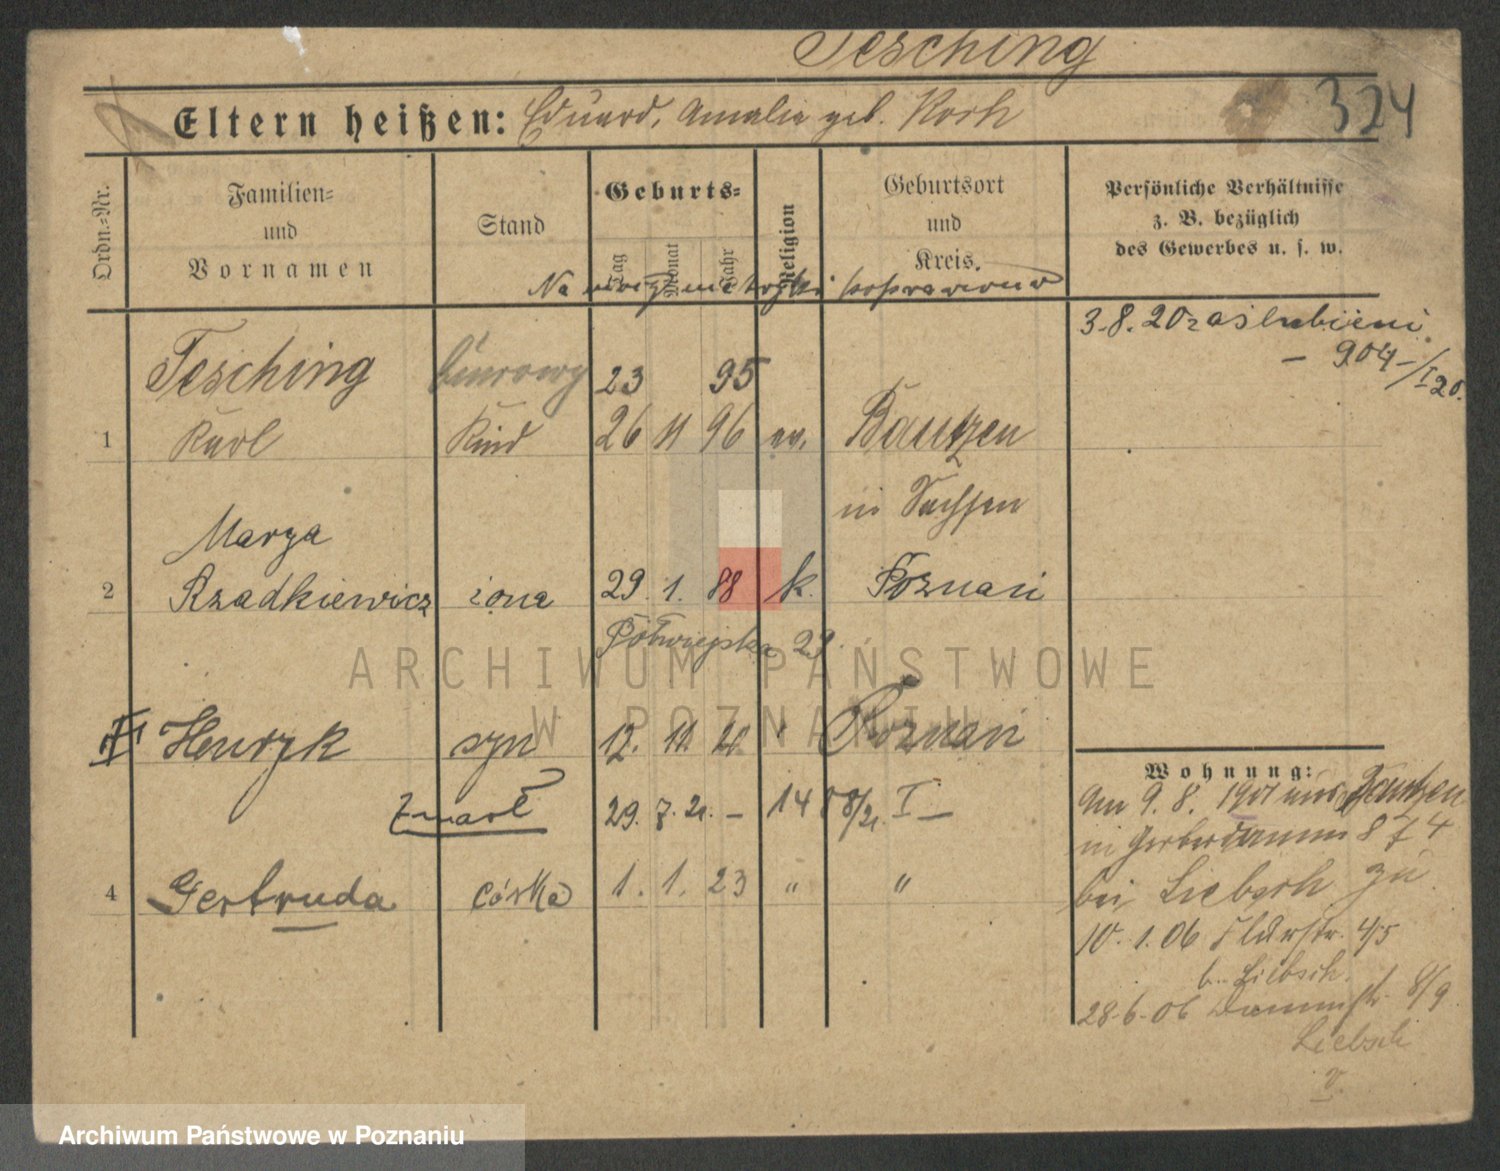 Tesching
324
Eltern heißen: Eduard, Amalie geb. Koch
Ordn.-Nr.
Familien- und Vornamen
Stand
Geburts-
Tag
Monat
Jahr
Religion
Geburtsort und Kreis.
Persönliche Verhältnisse
z. B. bezüglich
des Gewerbes u. s. w.
Na metryki poprawiono
3.8.20 zaślubieni
– 904–/I 20.
Tesching biurowy 23 95
1 Karl Kind 26 11 96 ev. Bautzen
in Sachsen
Marya
2 Rzadkiewicz żona 29. 1. 88 k. Poznań
Półwiejska 29.
Henryk syn 12. 11. Poznań
zmarł 29. 7. 21. – I –
4 Gertruda córka 1. 1. 23 " "
Wohnung:
Am 9. 8. 1901 aus Bautzen
in Gerberdamm
bei Liebsch zu
10. 1. 06 Flurstr. 4/5
b. Liebsch.
28.6.06 Dammstr. 8/9
Liebsch
v.
ARCHIWUM PAŃSTWOWE
W POZNANIU
Archiwum Państwowe w Poznaniu